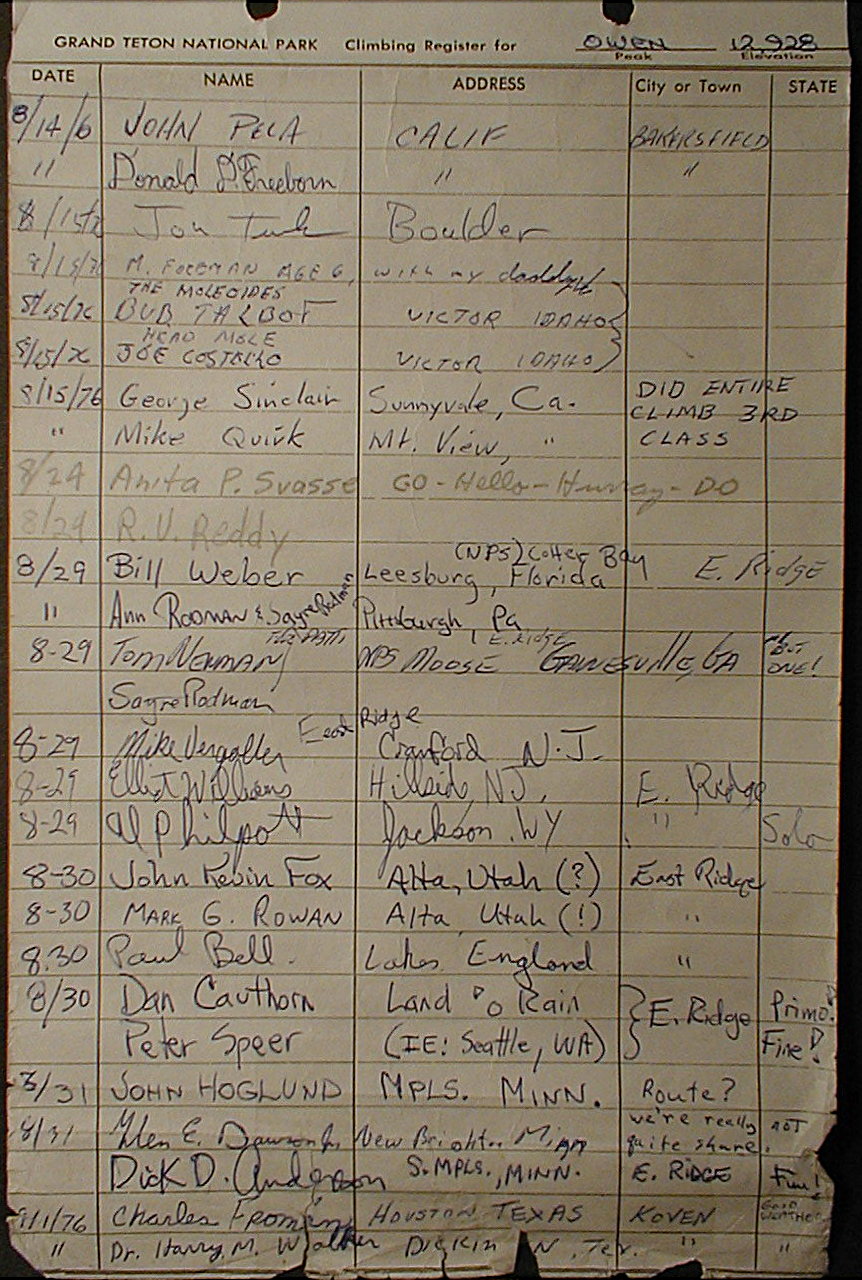 GRAND TETON NATIONAL PARK Climbing Register for OWEN 12,928
Peak Elevation
DATE NAME ADDRESS City or Town STATE
8/14/6 JOHN PELA CALIF BAKERSFIELD
" Donald D. Freeborn " "
8/15/76 Jon Boulder
8/15/76 M. FOREMAN AGE 6, with my daddy
THE MOLEOIDES
8/15/76 BUB TALBOT VICTOR IDAHO
HEAD MOLE
8/15/76 JOE COSTELLO VICTOR IDAHO
8/15/76 George Sinclair Sunnyvale, Ca. DID ENTIRE
CLIMB 3RD
" Mike Quirk Mt. View, " CLASS
8/24 Anita P. Svasse GO-Hello-Hurray-DO
8/24 R.V. Reddy
(NPS) Colter Bay
8/29 Bill Weber Leesburg, Florida E. RIDGE
" Ann RODMAN & Sayre Rodman Pittsburgh, Pa
E. RIDGE
8-29 TOM NEWMAN NPS MOOSE GAINESVILLE, GA BUT
ONE!
Sayre Rodman
East Ridge
8-29 Mike Cranford N.J.
8-29 Elliot Williams Hillside, NJ. E. Ridge
8-29 Al Philpott Jackson, WY " Solo
8-30 John Kevin Fox Alta, Utah (?) East Ridge
8-30 MARK G. ROWAN Alta, Utah (!) "
8.30 Paul Bell. Lakes England "
8/30 Dan Cauthorn Land 'o Rain E. Ridge Primo!
Peter Speer (IE: Seattle, WA) Fine!
8/31 JOHN HOGLUND MPLS. MINN. Route?
we're really NOT
8/31 Glen E. Dawson Jr. New Bright.. Minn quite share.
DICK D. Anderson S. MPLS., MINN. E. RIDGE Fun!
9/1/76 Charles Froman HOUSTON TEXAS KOVEN GOOD
WEATHER
" Dr. Harry M. Walker DICKINSON, Tex. " "